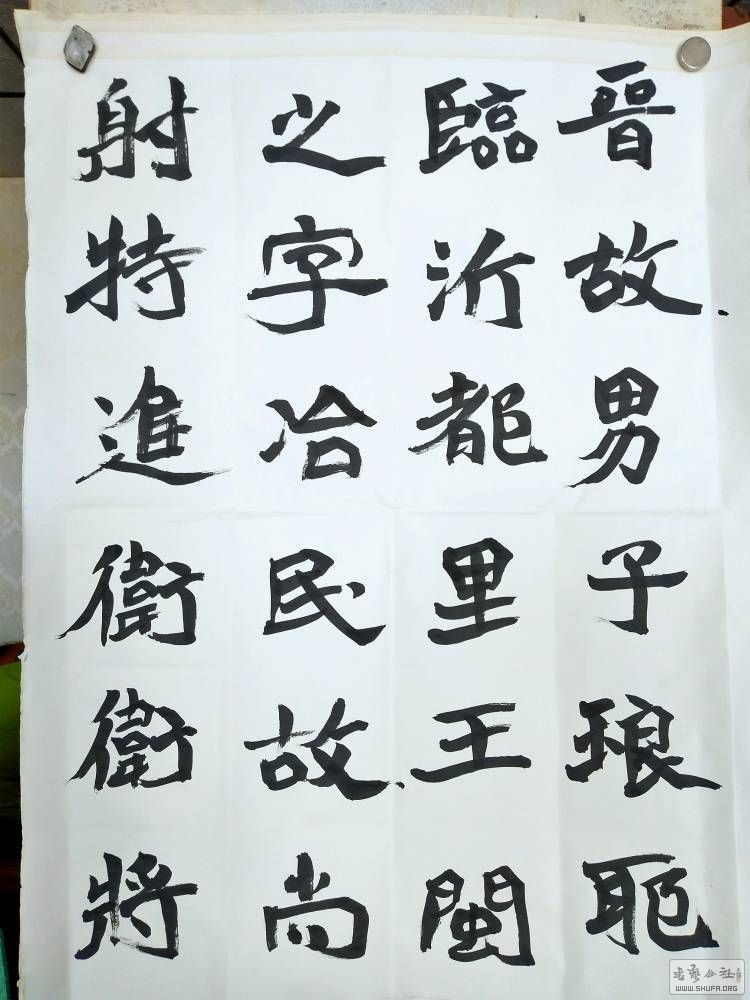 晉故男子琅耶
臨沂都里王閩
之字冶民故尚
射特進衛衛將
书艺公社
WWW.SHUFA.ORG